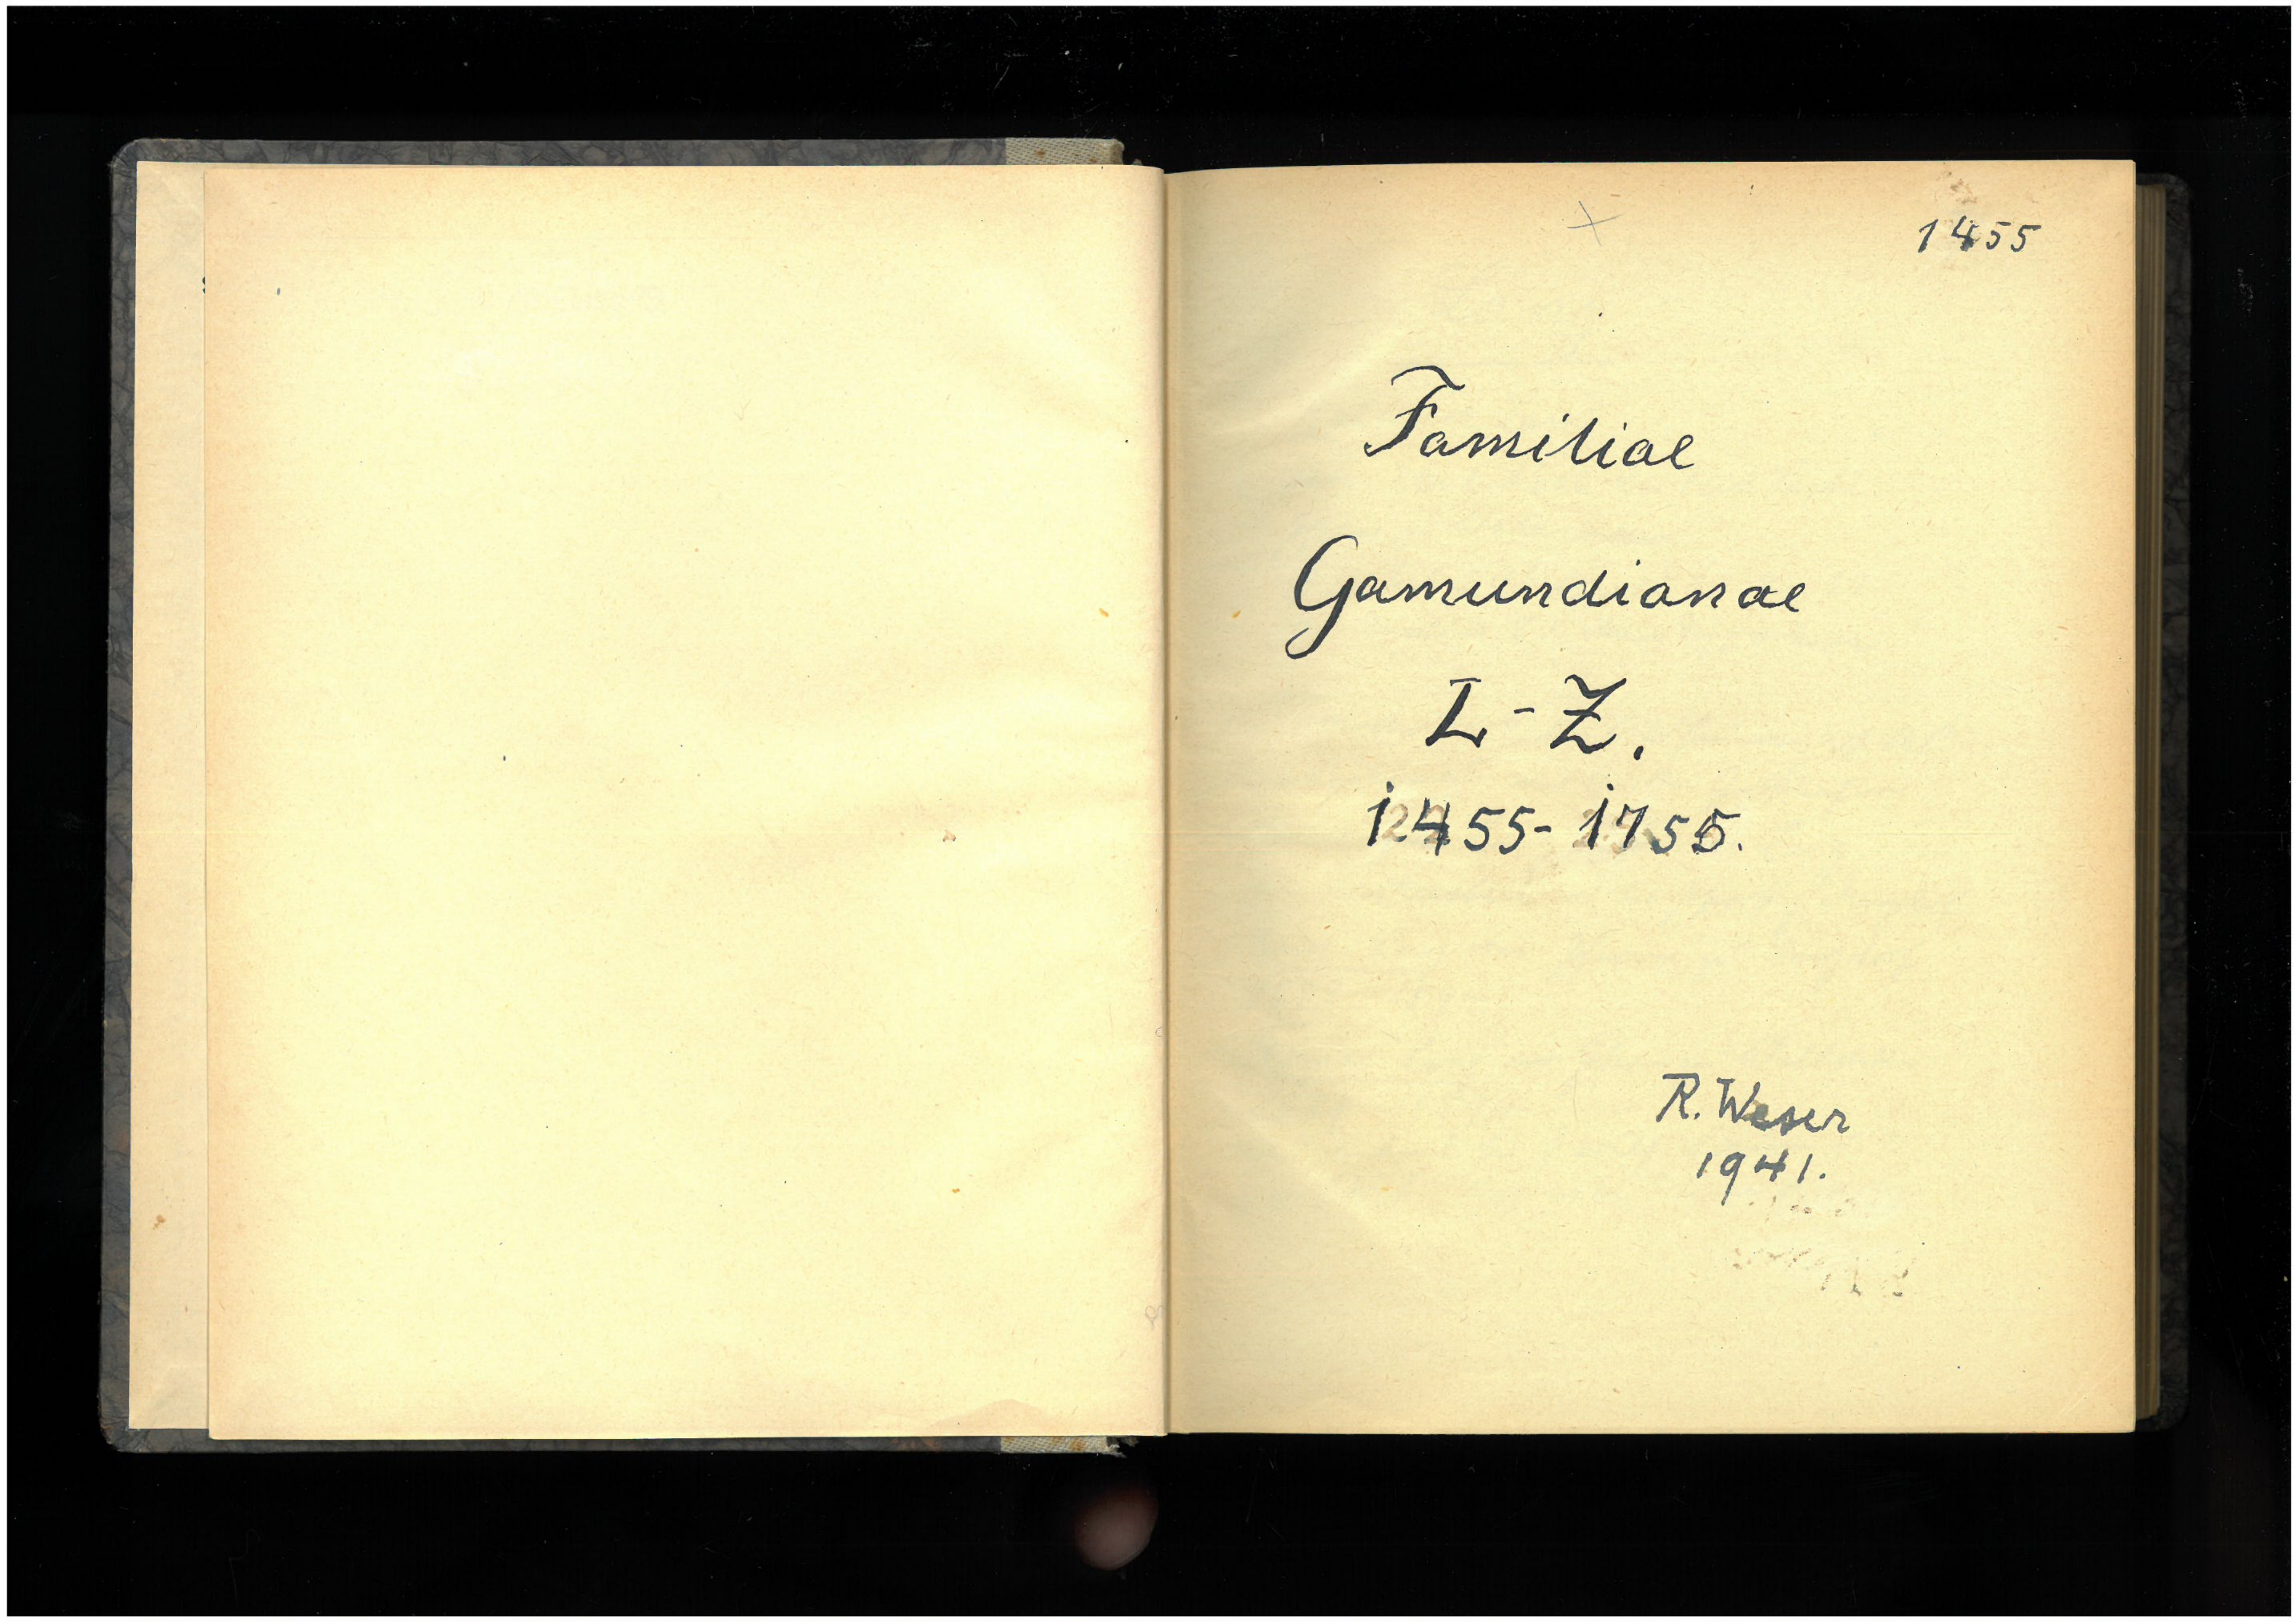 1455
Familiae
Gamundianae
L-Z.
1455-1755.
R. Weser
1941.